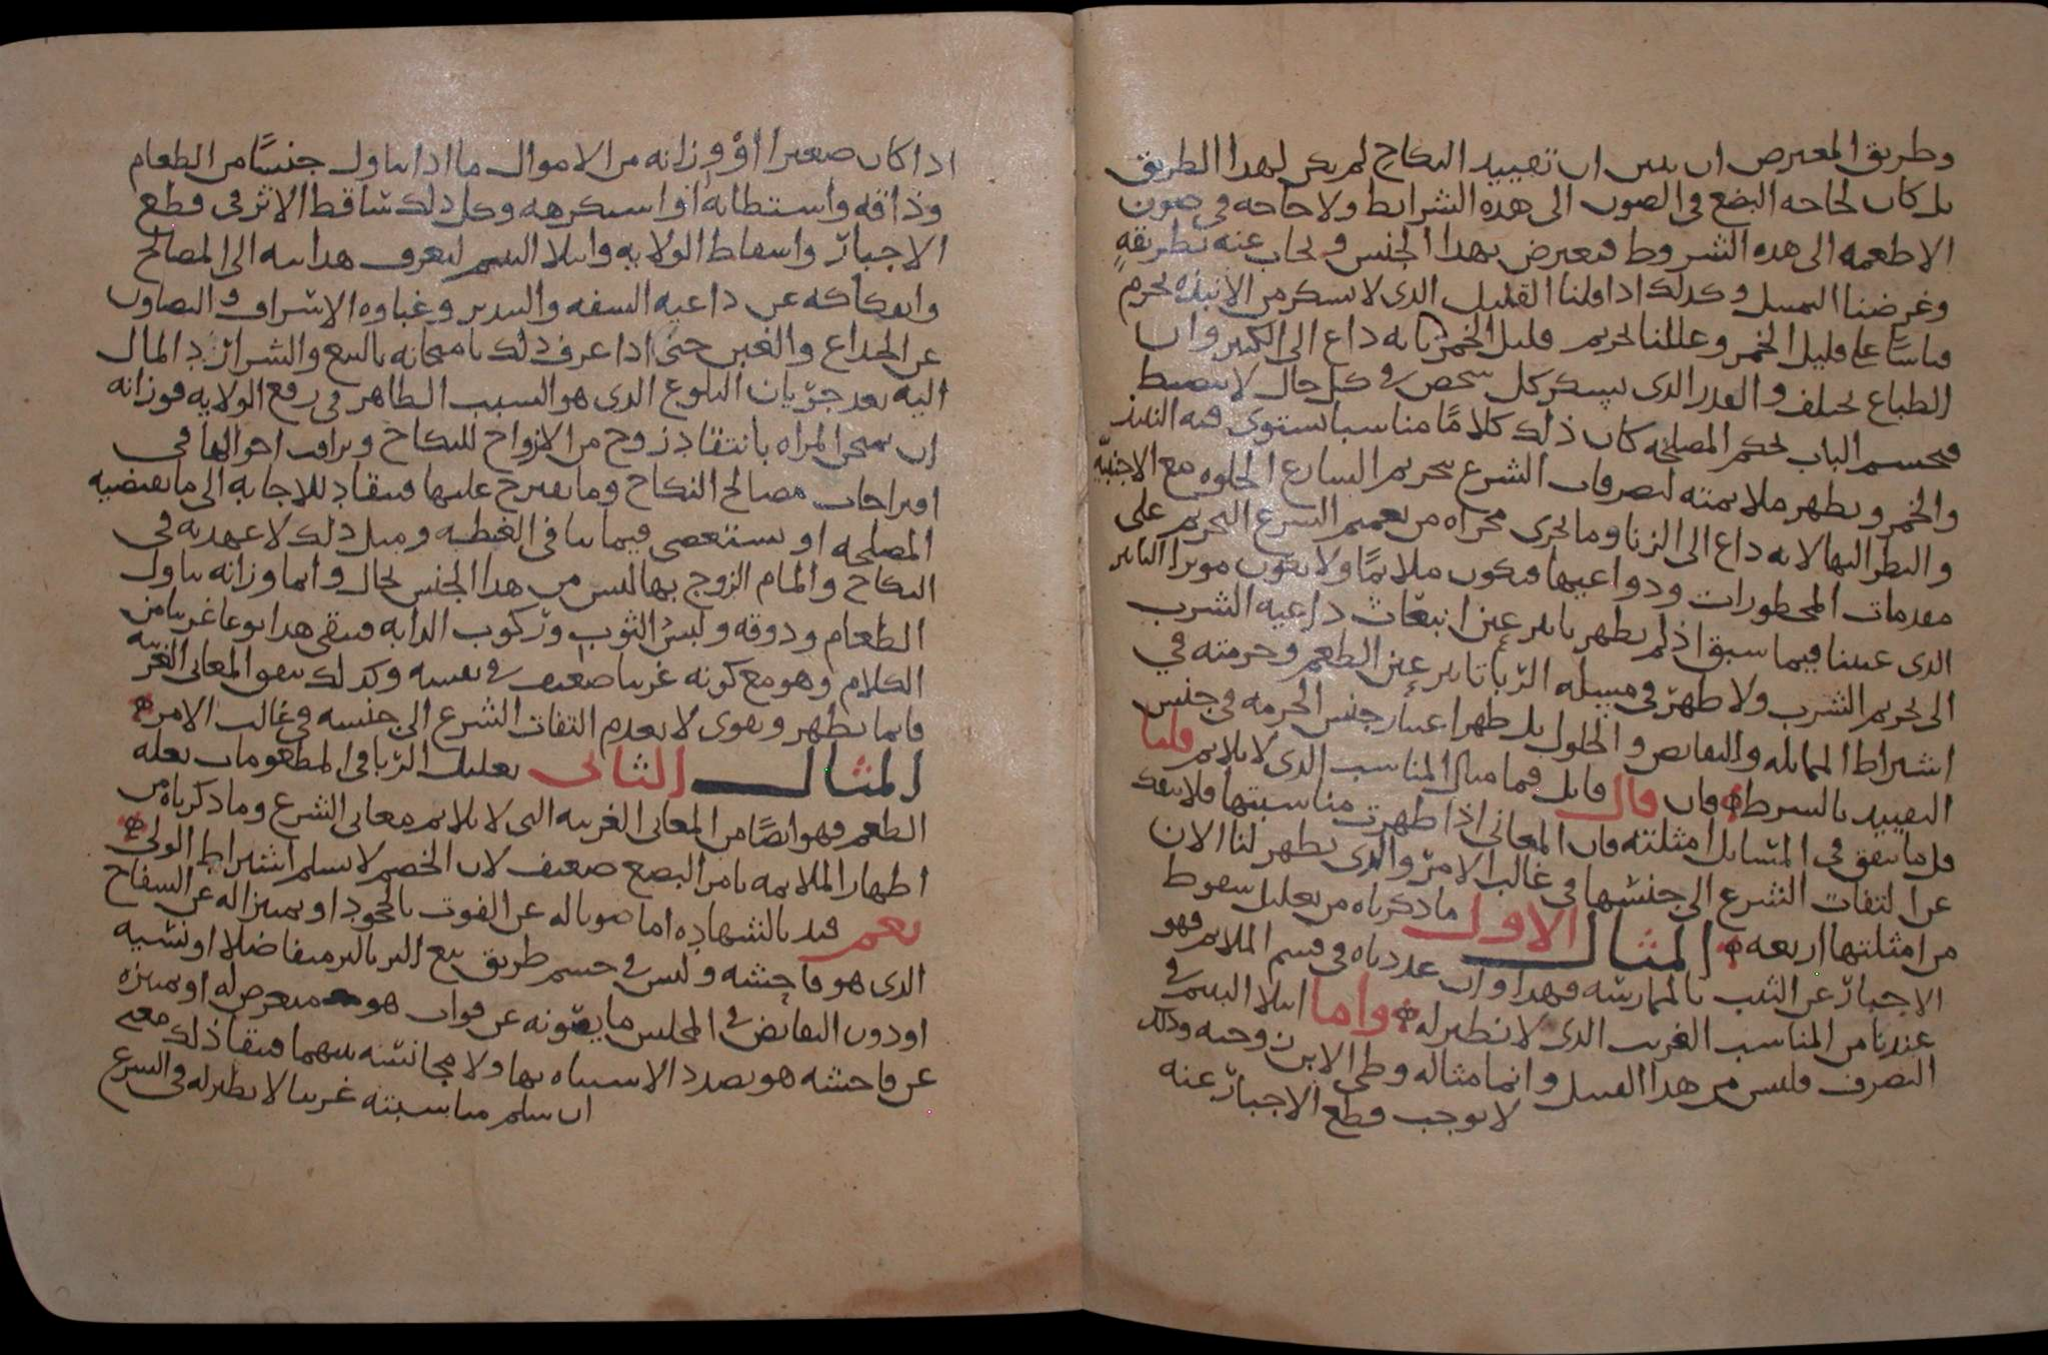 وطريق المعترض ان يبين ان تقييد النكاح لم يكن لهذا الطريق
بل كان لحاجه البضع في الصون الى هذه الشرايط ولا حاجه في صون
الاطعمه الى هذه الشروط فيعترض بهذا الجنس ويجاب عنه بطريقه
وغرضنا التمثيل وكذلك اذا قلنا القليل الذى لا يسكر من الانبذه يحرم
قياسًا على قليل الخمر وعللنا تحريم قليل الخمر بانه داع الى الكثير وان
الطباع تختلف والقدر الذى يسكر كل شخص في كل حال لا ينضبط
فيحسم الباب بحكم المصلحه كان ذلك كلامًا مناسبا يستوى فيه النبيذ
والخمر ويظهر ملايمته لتصرفات الشرع بتحريم الشارع الخلوه مع الاجنبيّه
والنظر اليها لانه داع الى الزنا وما يجرى مجراه من تعميم الشرع التحريم على
مقدمات المحظورات ودواعيها فيكون ملايمًا ولا يكون موثرا التاثير
الذى عنينا فيما سبق اذ لم يظهر تاثير عين انبعاث داعيه الشرب
الى تحريم الشرب ولا ظهر في مسله الرّبا تاثير عين الطعم وحرمته في
اشتراط المماثله والتقابض والحلول بل ظهر اعتبار جنس الحرمه في جنس
التقييد بالشرط فان قال قايل فما مثال المناسب الذى لا يلايم قلنا
قل ما يتفق في المسايل امثلته فان المعانى اذا ظهرت مناسبتها فلا ينفك
عن التفات الشرع الى جنسها في غالب الامر والذى يظهر لنا الان
من امثلتها اربعه المثال الاول ما ذكرناه من تعليل سقوط
الاجبار عن الثيب بالممارسه فهذا وان عددناه في قسم الملايم فهو
عندنا من المناسب الغريب الذى لا نظير له واما ابتلا اليتيم في
التصرف فليس من هذا القبيل وانما مثاله وطى الابن زوجته وذلك
لا يوجب قطع الاجبار عنه
اذا كان صغيرا او وزانه من الاموال ما اذا تناول جنسًا من الطعام
وذاقه واستطابه او استكرهه وكل ذلك ساقط الاثر في قطع
الاجبار واسقاط الولايه وابتلا اليتيم ليعرف هدايته الى المصالح
وانفكاكه عن داعيه السفه والتبذير وغباوه الاسراف والتصاون
عن الخداع والغبن حتى اذا عرف ذلك بامتحانه بالبيع والشرا رد المال
اليه بعد جريان البلوغ الذى هو السبب الظاهر في رفع الولايه فوزانه
ان يمتحن المراه بانتقاد زوج من الازواج للنكاح ويراقب احوالها في
اقتراحات مصالح النكاح وما يقترح عليها فتنقاد للاجابه الى ما يقتضيه
المصلحه او يستعصى فيما ينافى الغبطه ومثل ذلك لا عهد به في
النكاح والمام الزوج بها ليس من هذا الجنس بحال وانما وزانه تناول
الطعام وذوقه ولبس الثوب وركوب الدابه فيبقى هذا نوعا غريبا من
الكلام وهو مع كونه غريبا ضعيف في نفسه وكذلك يتفق المعانى الغريبه
فانما يظهر ويقوى لا يعدم التفات الشرع الى جنسه في غالب الامر
المثال الثانى تعليل الرّبا في المطعومات بعله
الطعم فهو ايضًا من المعانى الغريبه التى لا يلايم معانى الشرع وما ذكرناه من
اظهار الملايمه بامر البضع ضعيف لان الخصم لا يسلم اشتراط الولى
نعم قيد بالشهاده اما صونا له عن الفوت بالجحود او تمييزا له عن السفاح
الذى هو فاحشه وليس في حسم طريق بيع البر بالبر متفاضلا او نسيه
او دون التقابض في المجلس ما يصونه عن فوات هو متعرض له او يميزه
عن فاحشه هو بصدد الاشتباه بها ولا مجانسه بينهما فبقا ذلك معنى
ان سلم مناسبته غريبا لا نظير له في الشرع